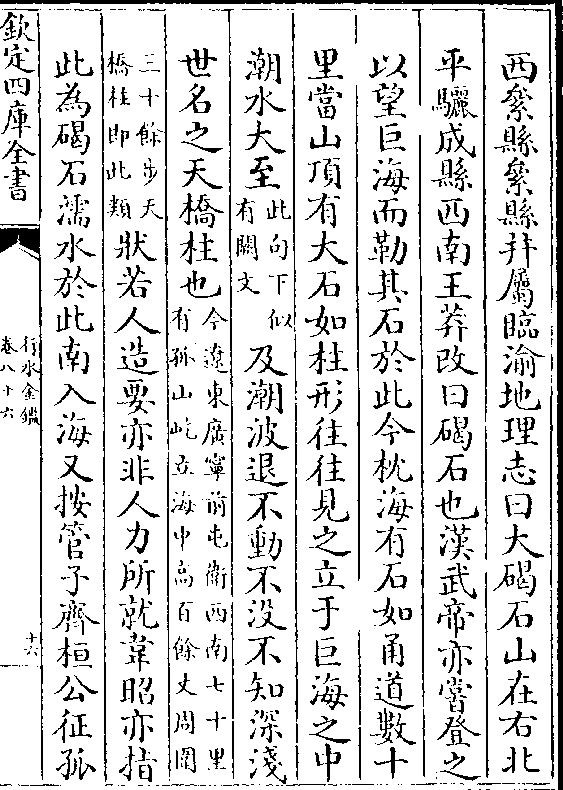 西絫縣絫縣并屬臨渝地理志曰大碣石山在右北
平驪成縣西南王莽改曰碣石也漢武帝亦嘗登之
以望巨海而勒其石於此今枕海有石如甬道數十
里當山頂有大石如柱形往往見之立于巨海之中
潮水大至
此句下似
有闕文
及潮波退不動不没不知深淺
世名之天橋柱也
今遼東廣寧前屯衛西南七十里
有孤山屹立海中高百餘丈周圍
三十餘步天
橋柱即此類
狀若人造要亦非人力所就韋昭亦指
此為碣石濡水於此南入海又按管子齊桓公征孤
欽定四庫全書
行水金鑑
卷八十六
十六